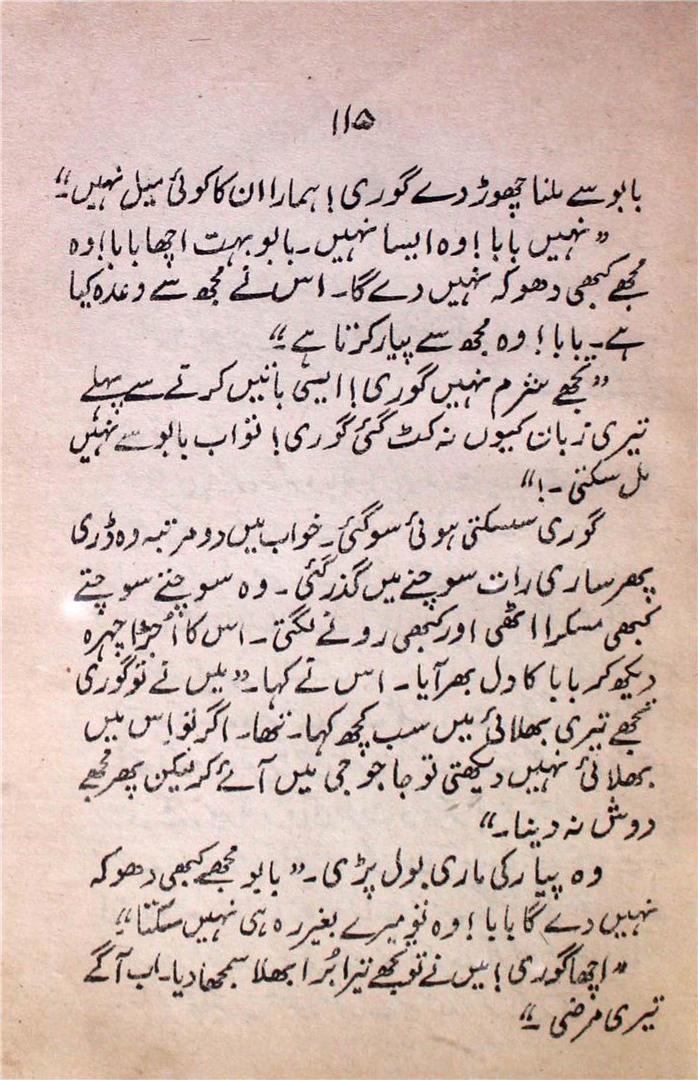 ۱۱۵
بابو سے ملنا چھوڑ دے گوری! ہمارا ان کا کوئی میل نہیں۔“
”نہیں بابا! وہ ایسا نہیں۔ بابو بہت اچھا بابا! وہ
مجھے کبھی دھوکہ نہیں دے گا۔ اس نے مجھ سے وعدہ کیا
ہے۔ بابا! وہ مجھ سے پیار کرتا ہے۔“
”تجھے شرم نہیں گوری! ایسی باتیں کرنے سے پہلے
تیری زبان کیوں نہ کٹ گئی گوری! تو اب بابو سے نہیں
مل سکتی۔!“
گوری سسکتی ہوئی سو گئی۔ خواب میں دو مرتبہ وہ ڈری
پھر ساری رات سوچنے میں گذر گئی۔ وہ سوچتے سوچتے
کبھی مسکرا اٹھی اور کبھی رونے لگتی۔ اس کا اُجڑا چہرہ
دیکھ کر بابا کا دل بھر آیا۔ اس نے کہا۔ ”میں نے تو گوری
تجھے تیری بھلائی میں سب کچھ کہا۔ تھا۔ اگر تو اِس میں
بھلائی نہیں دیکھتی تو جا جو جی میں آئے کر لیکن پھر مجھے
دوش نہ دینا۔“
وہ پیار کی ماری بول پڑی۔ ”بابو مجھے کبھی دھوکہ
نہیں دے گا بابا! وہ تو میرے بغیر رہ ہی نہیں سکتا“
”اچھا گوری! میں نے تو تجھے تیرا بُرا بھلا سمجھا دیا۔ اب آگے
تیری مرضی۔“